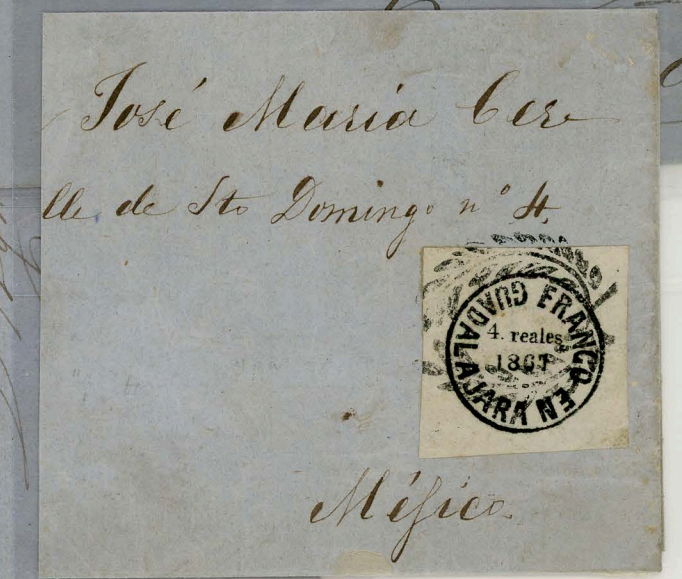 José María Cere
lle de Sto Domingo nº 4.
FRANCO EN GUADALAJARA
4. reales
1867
Méjico